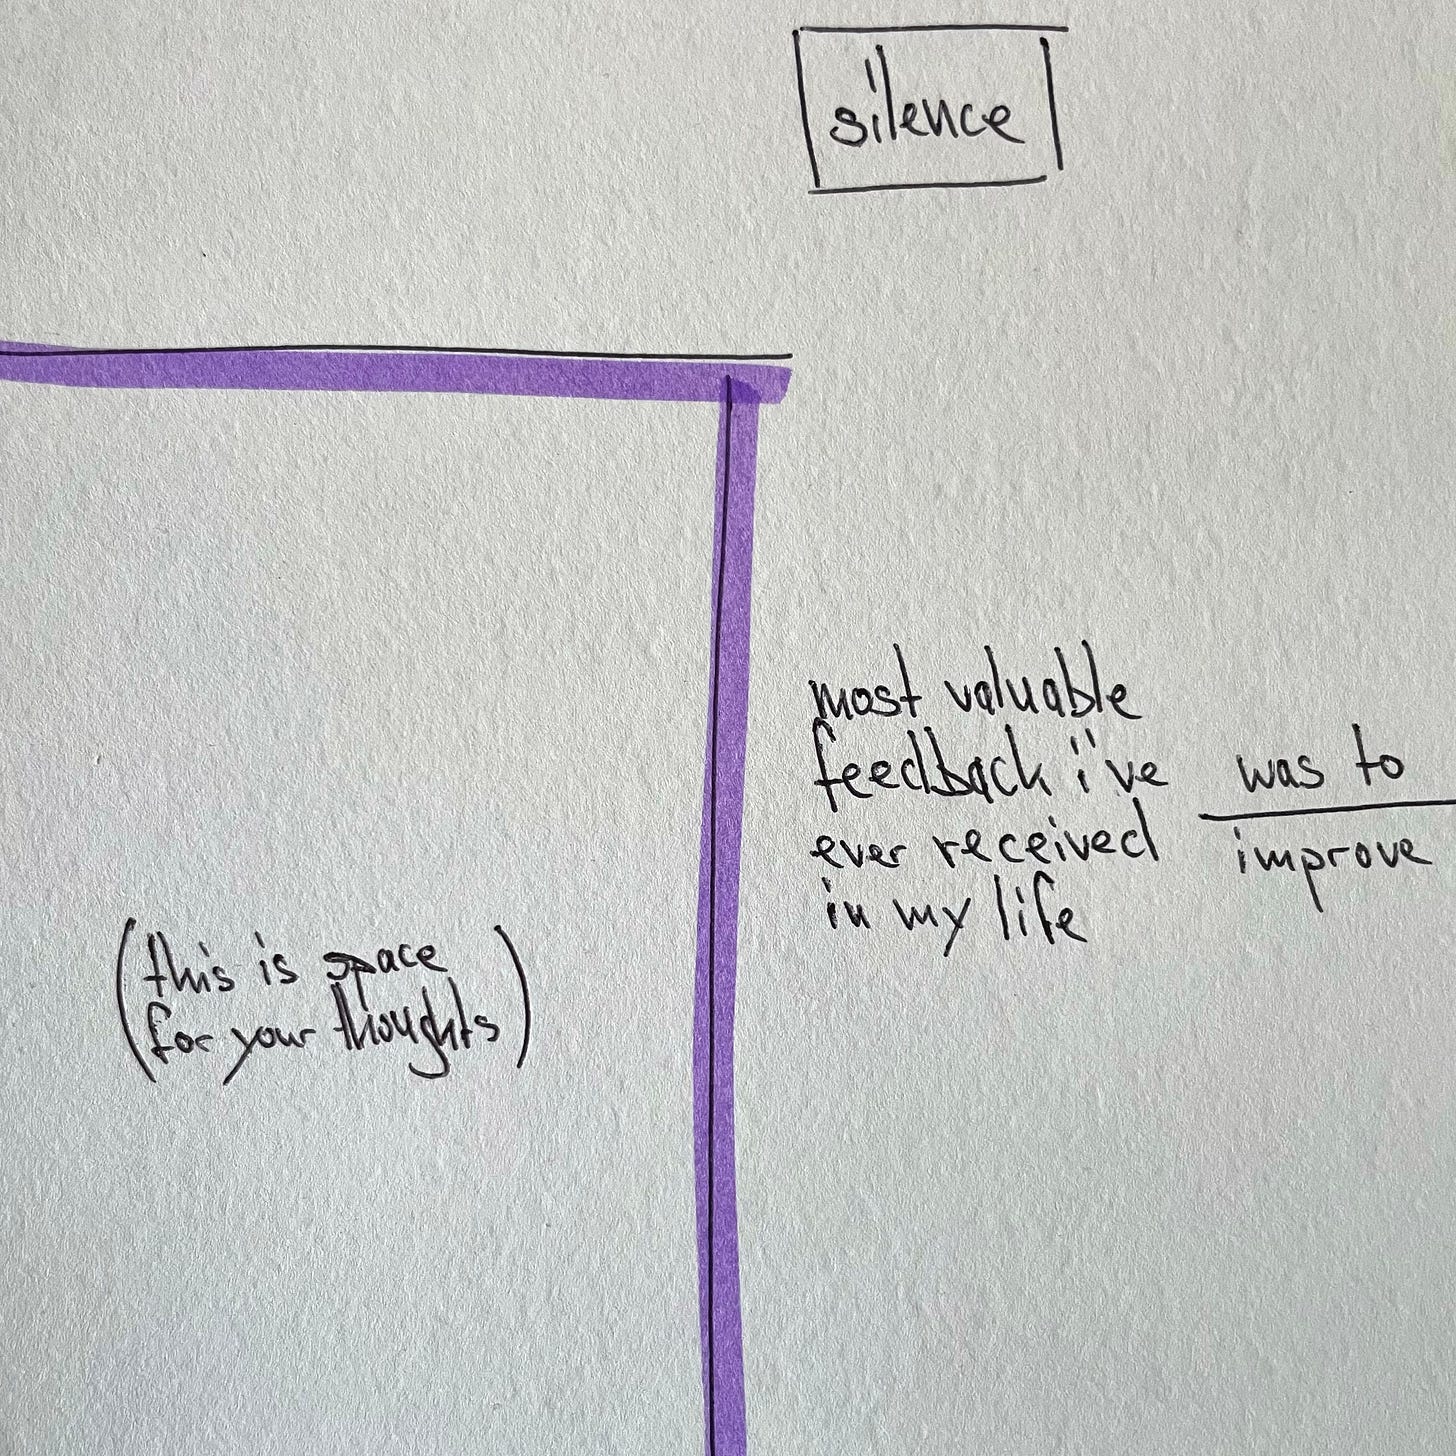 silence
most valuable
feedback i've
ever received
in my life
was to
improve
(this is space
for your thoughts)